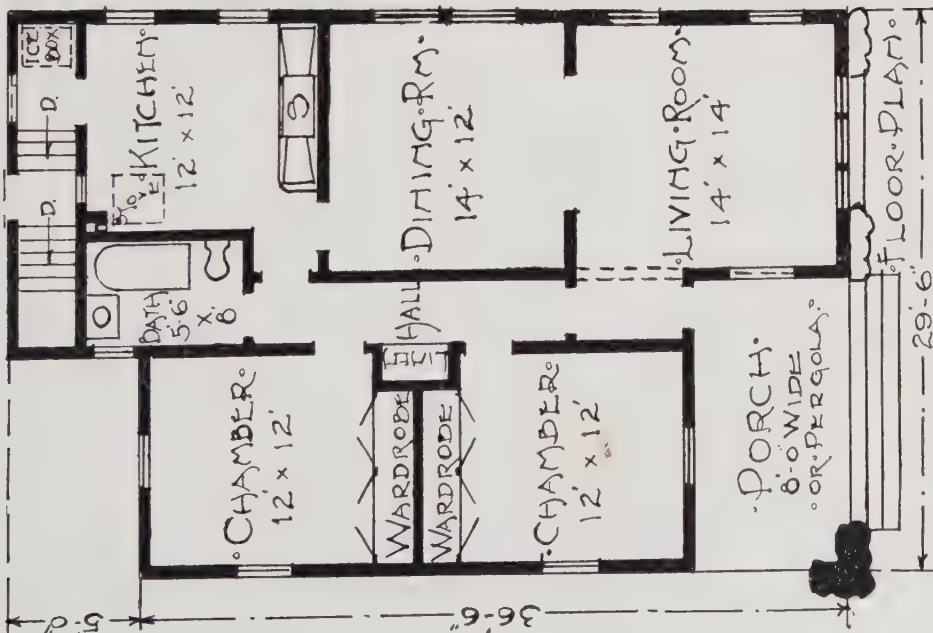 ICE
BOX
D.
D.
STOVE
·KITCHEN·
12' x 12'
BATH
5'-6"
X
8'
·DINING·RM·
14' x 12'
·LIVING·ROOM·
14' x 14'
HALL
·CHAMBER·
12' x 12'
WARDROBE
WARDROBE
·CHAMBER·
12' x 12'
·PORCH·
8'-0" WIDE
·OR·PERGOLA·
·FLOOR·PLAN·
29'-6"
36'-6"
5'-0"